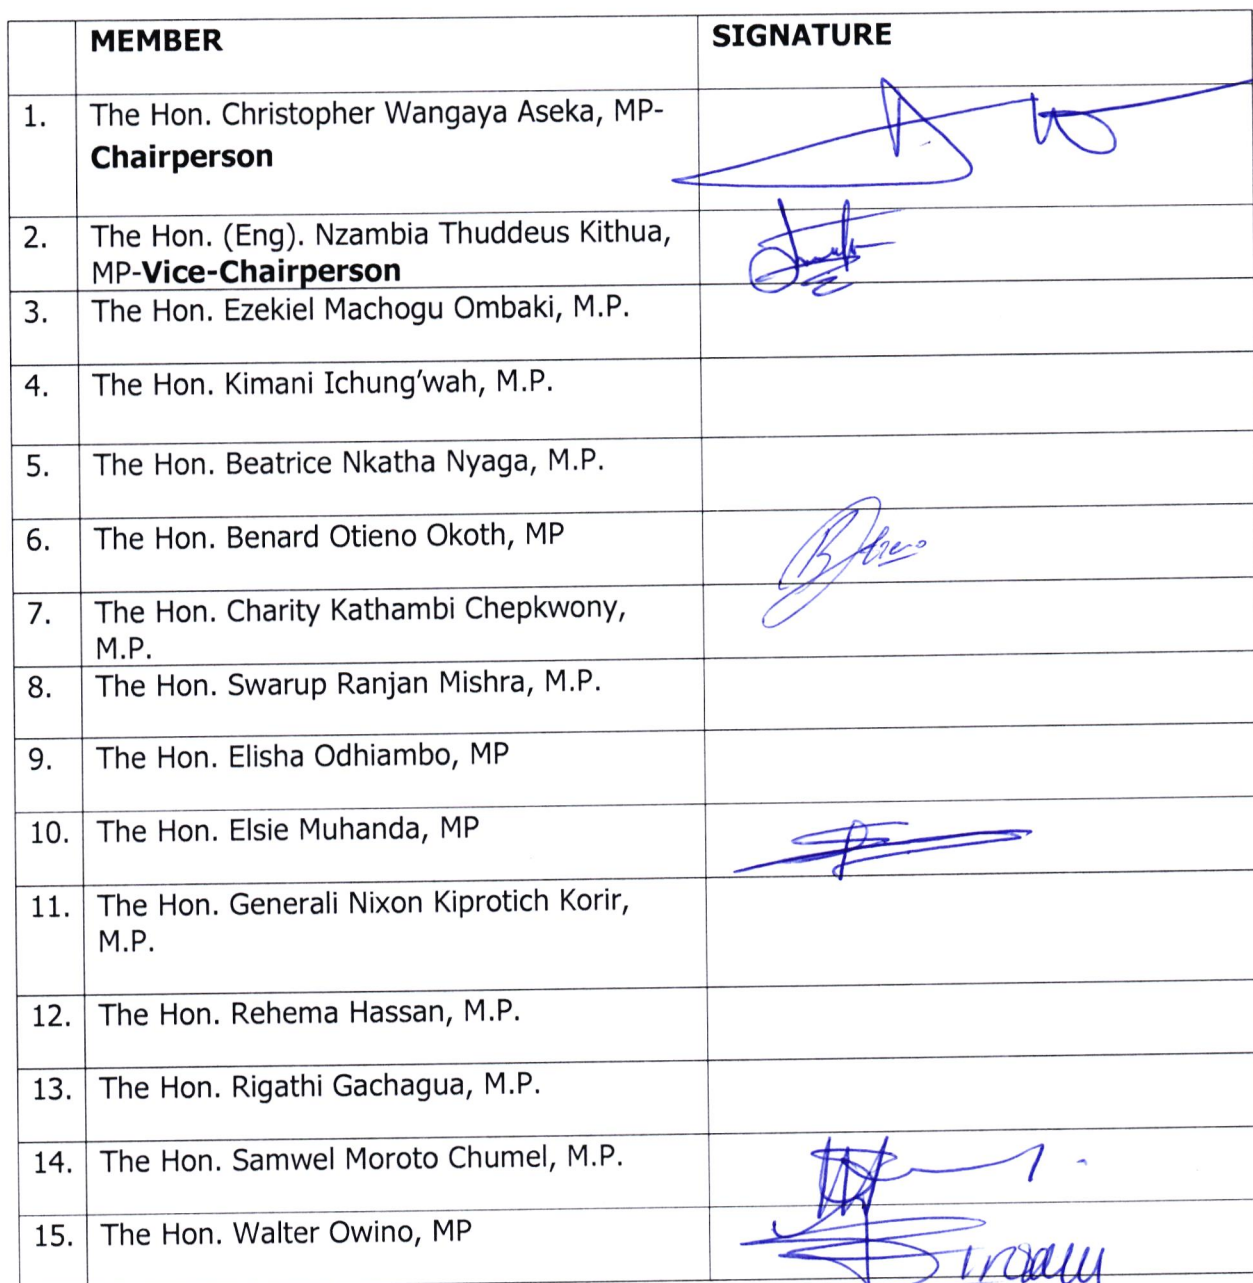 MEMBER SIGNATURE
1. The Hon. Christopher Wangaya Aseka, MP-
Chairperson
2. The Hon. (Eng). Nzambia Thuddeus Kithua,
MP-Vice-Chairperson
3. The Hon. Ezekiel Machogu Ombaki, M.P.
4. The Hon. Kimani Ichung’wah, M.P.
5. The Hon. Beatrice Nkatha Nyaga, M.P.
6. The Hon. Benard Otieno Okoth, MP
7. The Hon. Charity Kathambi Chepkwony,
M.P.
8. The Hon. Swarup Ranjan Mishra, M.P.
9. The Hon. Elisha Odhiambo, MP
10. The Hon. Elsie Muhanda, MP
11. The Hon. Generali Nixon Kiprotich Korir,
M.P.
12. The Hon. Rehema Hassan, M.P.
13. The Hon. Rigathi Gachagua, M.P.
14. The Hon. Samwel Moroto Chumel, M.P.
15. The Hon. Walter Owino, MP